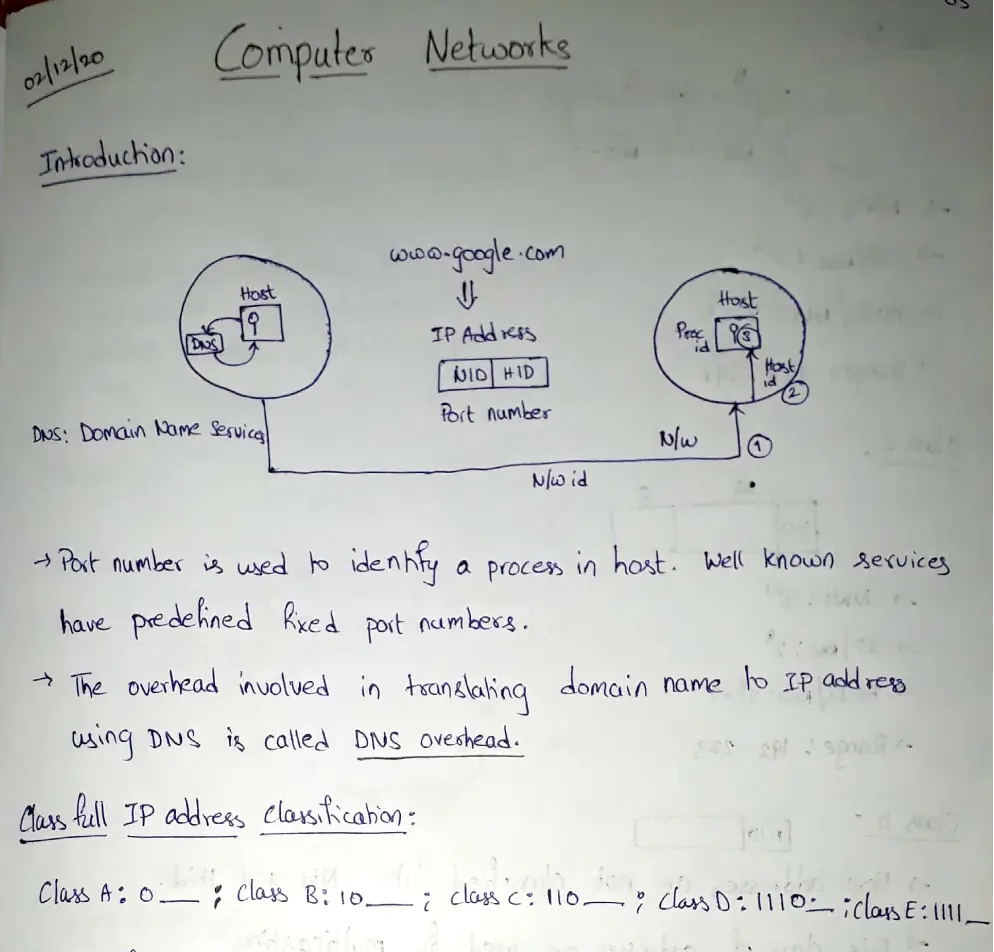 02/12/20
Computer Networks
Introduction:
www.google.com
Host
Host
IP Address
DNS
Proc id
NID HID
Host id
3
2
Port number
DNS: Domain Name Service
N/w
1
N/w id
→ Port number is used to identify a process in host. Well known services
have predefined fixed port numbers.
→ The overhead involved in translating domain name to IP address
using DNS is called DNS overhead.
Class full IP address classification:
Class A: 0__ ; Class B: 10__ ; class C: 110__ ; Class D: 1110__ ; Class E: 1111__